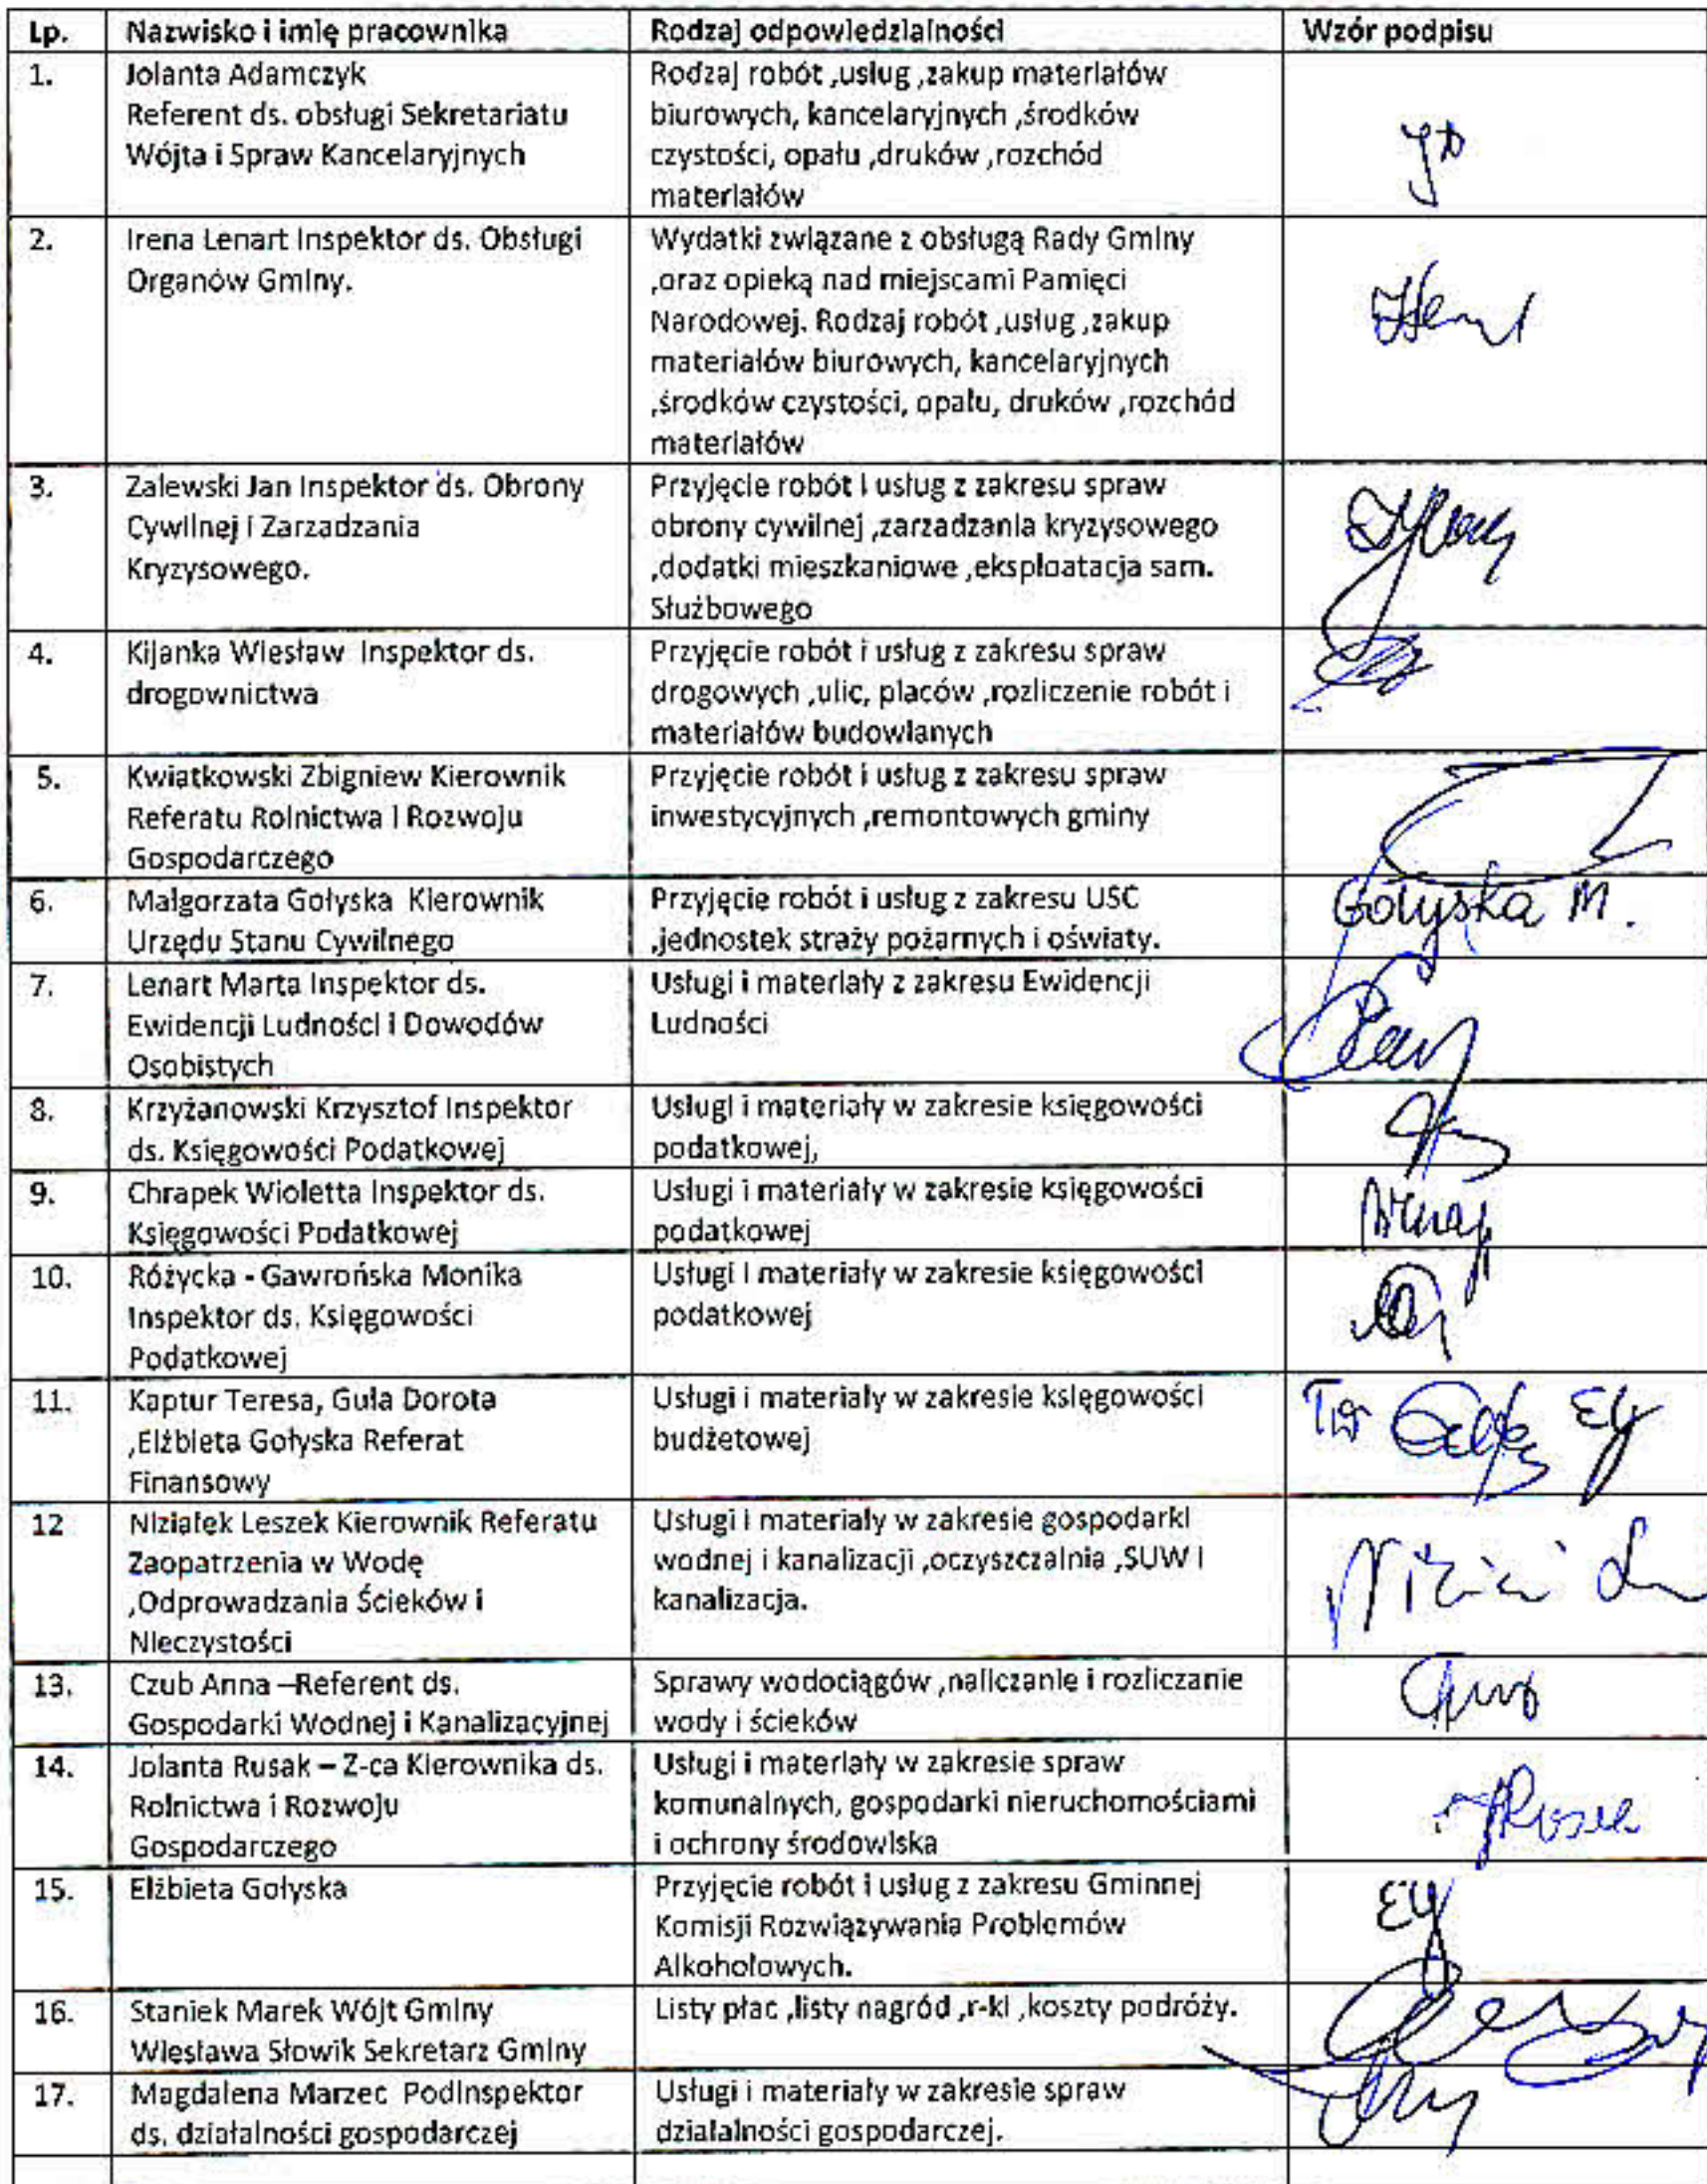 Lp. Nazwisko i imię pracownika Rodzaj odpowiedzialności Wzór podpisu
1. Jolanta Adamczyk
Referent ds. obsługi Sekretariatu
Wójta i Spraw Kancelaryjnych
Rodzaj robót ,usług ,zakup materiałów
biurowych, kancelaryjnych ,środków
czystości, opału ,druków ,rozchód
materiałów
2. Irena Lenart Inspektor ds. Obsługi
Organów Gminy.
Wydatki związane z obsługą Rady Gminy
,oraz opieką nad miejscami Pamięci
Narodowej. Rodzaj robót ,usług ,zakup
materiałów biurowych, kancelaryjnych
,środków czystości, opału, druków ,rozchód
materiałów
3. Zalewski Jan Inspektor ds. Obrony
Cywilnej i Zarzadzania
Kryzysowego.
Przyjęcie robót i usług z zakresu spraw
obrony cywilnej ,zarzadzania kryzysowego
,dodatki mieszkaniowe ,eksploatacja sam.
Służbowego
4. Kijanka Wiesław Inspektor ds.
drogownictwa
Przyjęcie robót i usług z zakresu spraw
drogowych ,ulic, placów ,rozliczenie robót i
materiałów budowlanych
5. Kwiatkowski Zbigniew Kierownik
Referatu Rolnictwa i Rozwoju
Gospodarczego
Przyjęcie robót i usług z zakresu spraw
inwestycyjnych ,remontowych gminy
6. Małgorzata Gołyska Kierownik
Urzędu Stanu Cywilnego
Przyjęcie robót i usług z zakresu USC
,jednostek straży pożarnych i oświaty.
Gołyska M.
7. Lenart Marta Inspektor ds.
Ewidencji Ludności i Dowodów
Osobistych
Usługi i materiały z zakresu Ewidencji
Ludności
8. Krzyżanowski Krzysztof Inspektor
ds. Księgowości Podatkowej
Usługi i materiały w zakresie księgowości
podatkowej,
9. Chrapek Wioletta Inspektor ds.
Księgowości Podatkowej
Usługi i materiały w zakresie księgowości
podatkowej
10. Różycka - Gawrońska Monika
Inspektor ds. Księgowości
Podatkowej
Usługi i materiały w zakresie księgowości
podatkowej
11. Kaptur Teresa, Guła Dorota
,Elżbieta Gołyska Referat
Finansowy
Usługi i materiały w zakresie księgowości
budżetowej
12 Niziałek Leszek Kierownik Referatu
Zaopatrzenia w Wodę
,Odprowadzania Ścieków i
Nieczystości
Usługi i materiały w zakresie gospodarki
wodnej i kanalizacji ,oczyszczalnia ,SUW i
kanalizacja.
13. Czub Anna –Referent ds.
Gospodarki Wodnej i Kanalizacyjnej
Sprawy wodociągów ,naliczanie i rozliczanie
wody i ścieków
14. Jolanta Rusak – Z-ca Kierownika ds.
Rolnictwa i Rozwoju
Gospodarczego
Usługi i materiały w zakresie spraw
komunalnych, gospodarki nieruchomościami
i ochrony środowiska
15. Elżbieta Gołyska
Przyjęcie robót i usług z zakresu Gminnej
Komisji Rozwiązywania Problemów
Alkoholowych.
16. Staniek Marek Wójt Gminy
Wiesława Słowik Sekretarz Gminy
Listy płac ,listy nagród ,r-ki ,koszty podróży.
17. Magdalena Marzec Podinspektor
ds. działalności gospodarczej
Usługi i materiały w zakresie spraw
działalności gospodarczej.